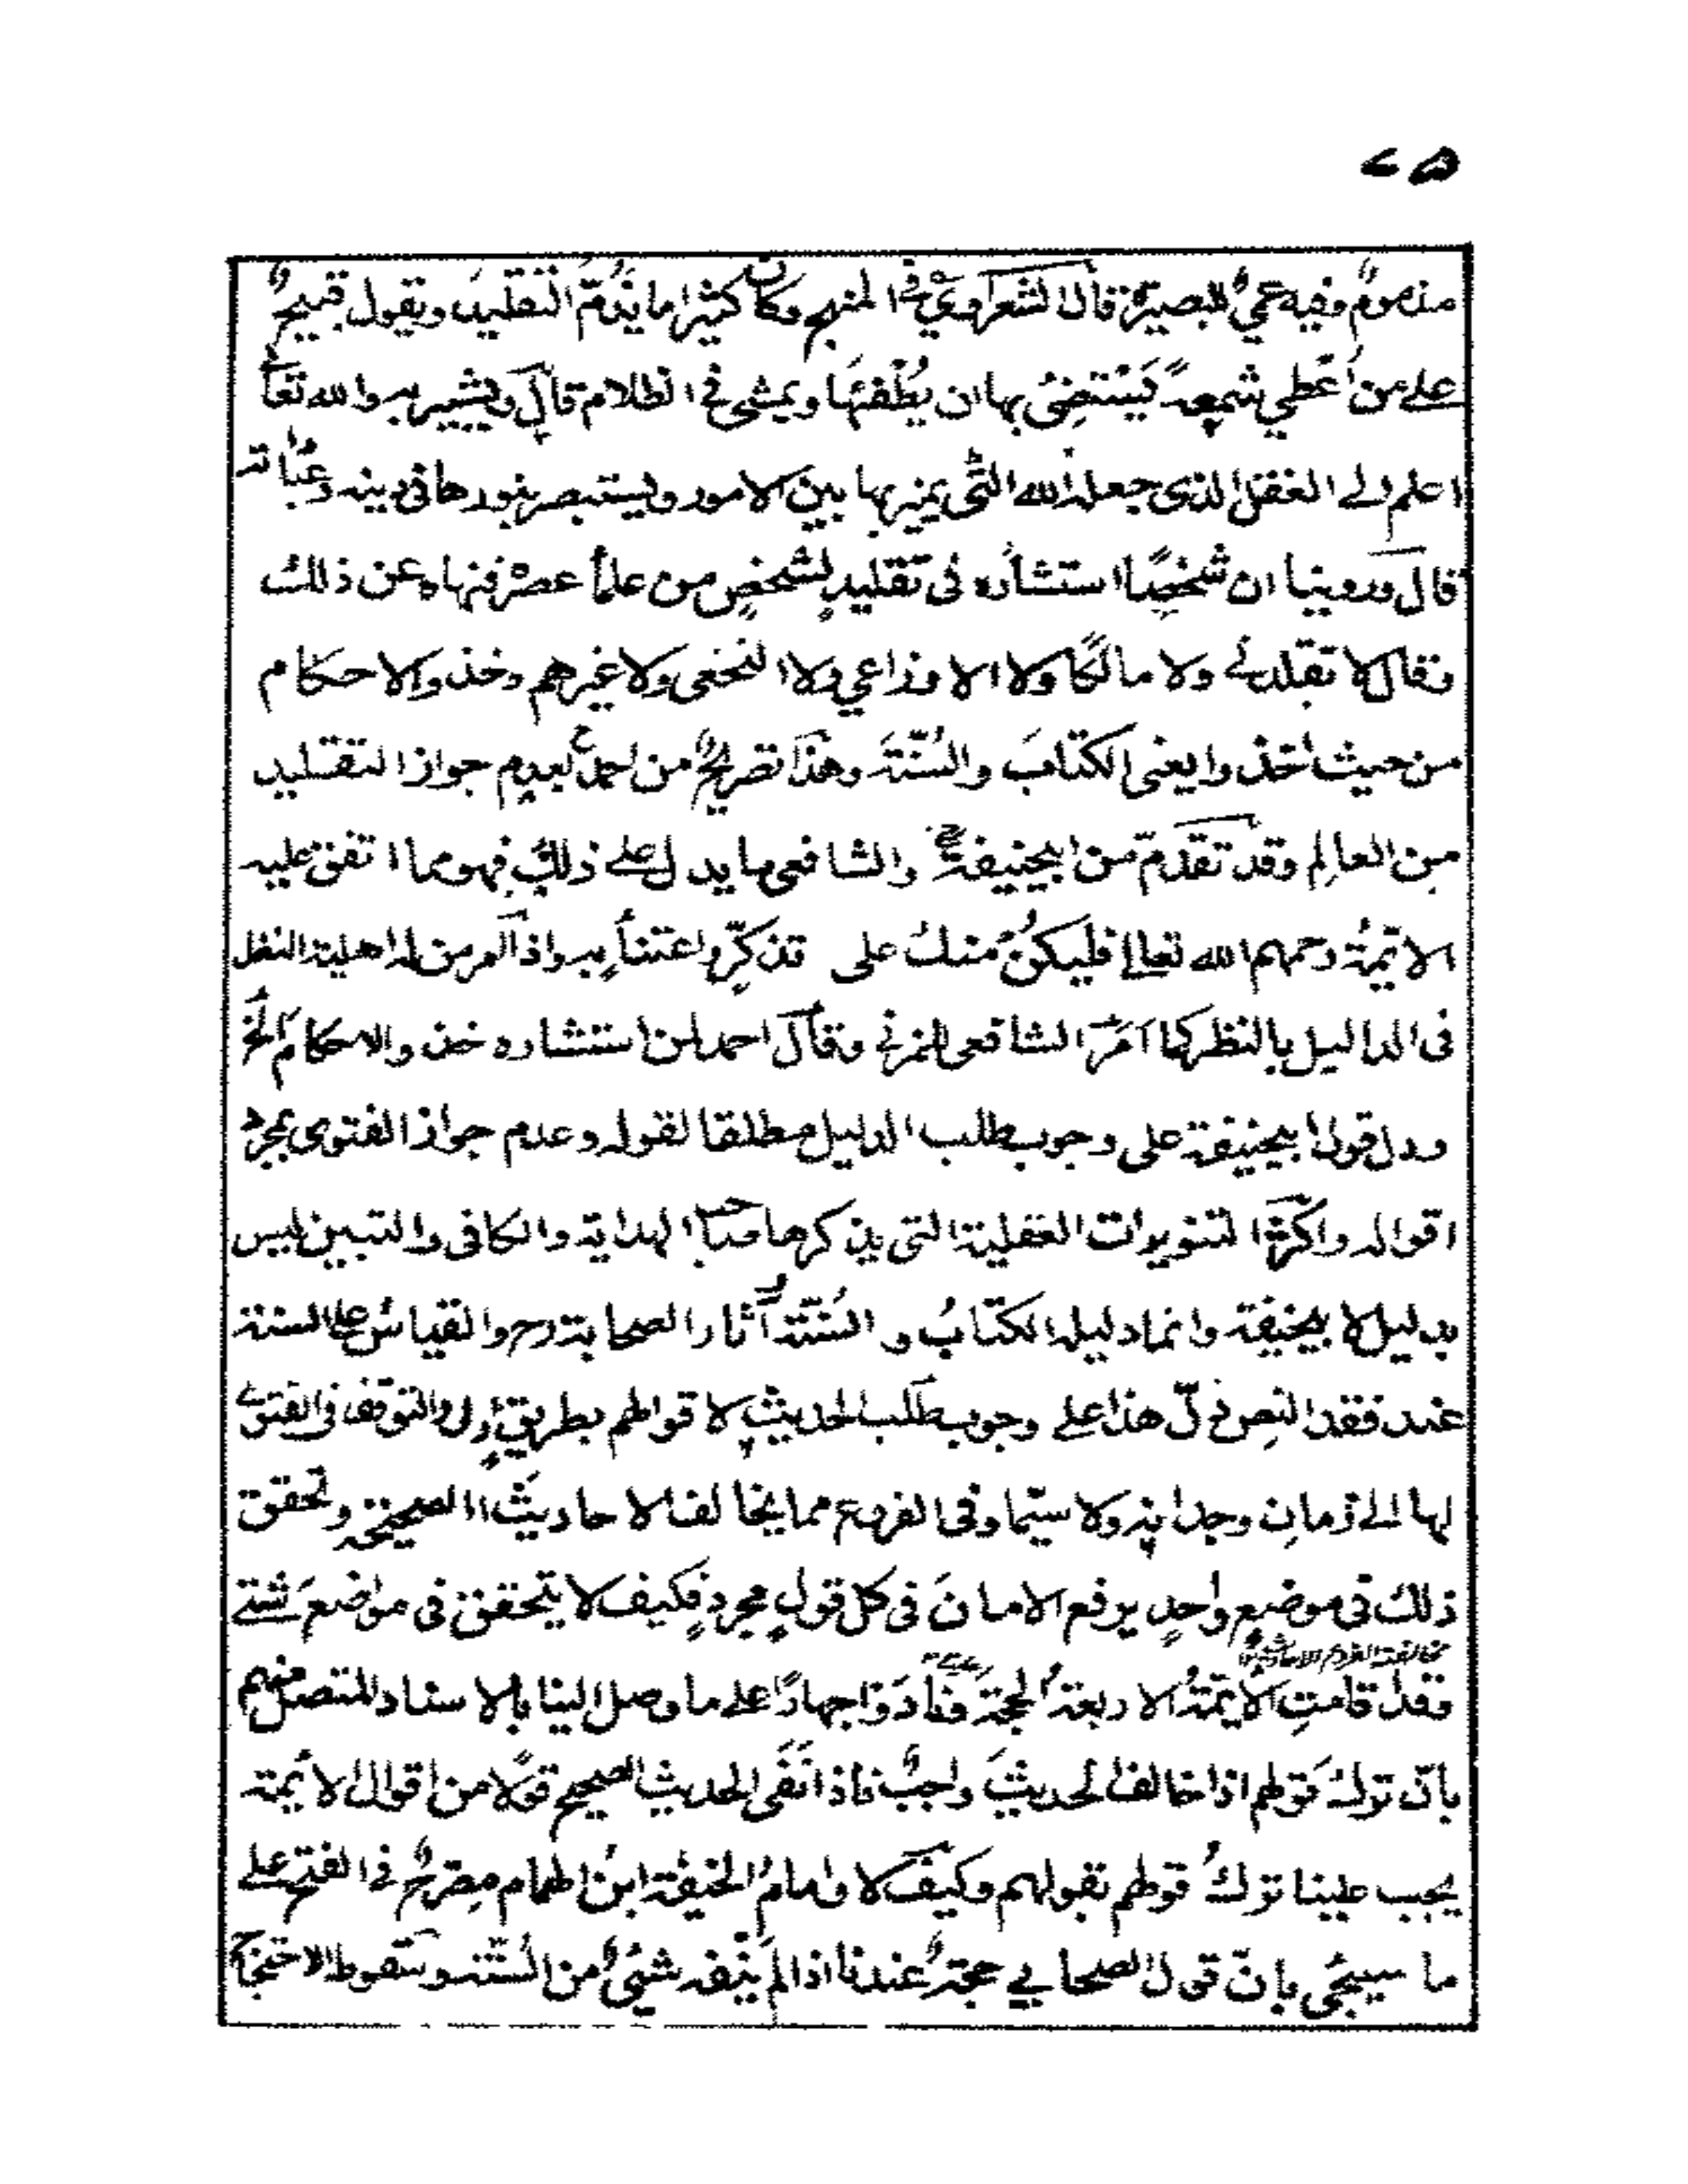 ٢٥
مذموم وفيه عمي للبصيرة قال الشعراوي في المنهج وكان كثيرا ما يذم التقليد ويقول قبيح
على من أعطي شمعة يستضئ بها ان يطفئها ويمشى في الظلام قال ويشير به والله تعا
اعلم الى العقل الذى جعله الله التى يميز بها بين الامور ويستبصر بنورها فى دينه وعباته
قال وروينا ان شخصا استشاره فى تقليد لشخص من علمأ عصره فنهاه عن ذلك
وقال لا تقلدني ولا مالكا ولا الاوزاعي ولا النخعى ولا غيرهم وخذ والاحكام
من حيث اخذوا يعنى الكتاب والسنة وهذا تصريح من احمد بعدم جواز التقليد
من العالم وقد تقدم من ابيحنيفة والشافعى ما يدل على ذلك فهو مما اتفق عليه
الائمة رحمهم الله تعالى فليكن منك على تذكر واعتنأ به واذ ألم من له اهلية النظر
فى الداليل بالنظر كما أمر الشافعى المزني وقال احمد لمن استشاره خذ والاحكام الخ
ودل قول ابيحنيفة على وجوب طلب الدليل مطلقا لقوله وعدم جواز الفتوى بمجرد
اقواله واكثر التنويرات العقلية التى يذكرها صاحب الهداية والكافى والتبين ليس
بدليل لابيحنيفة وانما دليله الكتاب و السنة آثار الصحابة رح والقياس على السنة
عند فقد النص دل هذا على وجوب طلب الحديث لاقوالهم بطريق أولى والتوقف فى الفتوى
لها الى زمان وجدانه ولا سيما وفى الفروع مما يخالف الاحاديث الصحيحة وتحقق
ذلك فى موضع واحد يرفع الامان فى كل قول مجرد فكيف لا يتحقق فى مواضع شتى
مخالفة الفروع للاحاديث
وقد قامت الائمة الاربعة الحجة ونادوا جهارا على ما وصل الينا بالاسناد المتصل منهم
بان ترك قولهم اذا خالف الحديث واجب فاذا نفى الحديث الصحيح قولا من اقوال الأئمة
يجب علينا ترك قولهم بقولهم وكيف لا وامام الحنيفة ابن الهمام مصرح في الفتح على
ما سيجئ بان قول الصحابي حجة عندنا اذا لم ينفه شئ من السنة وسقوط الاحتجا